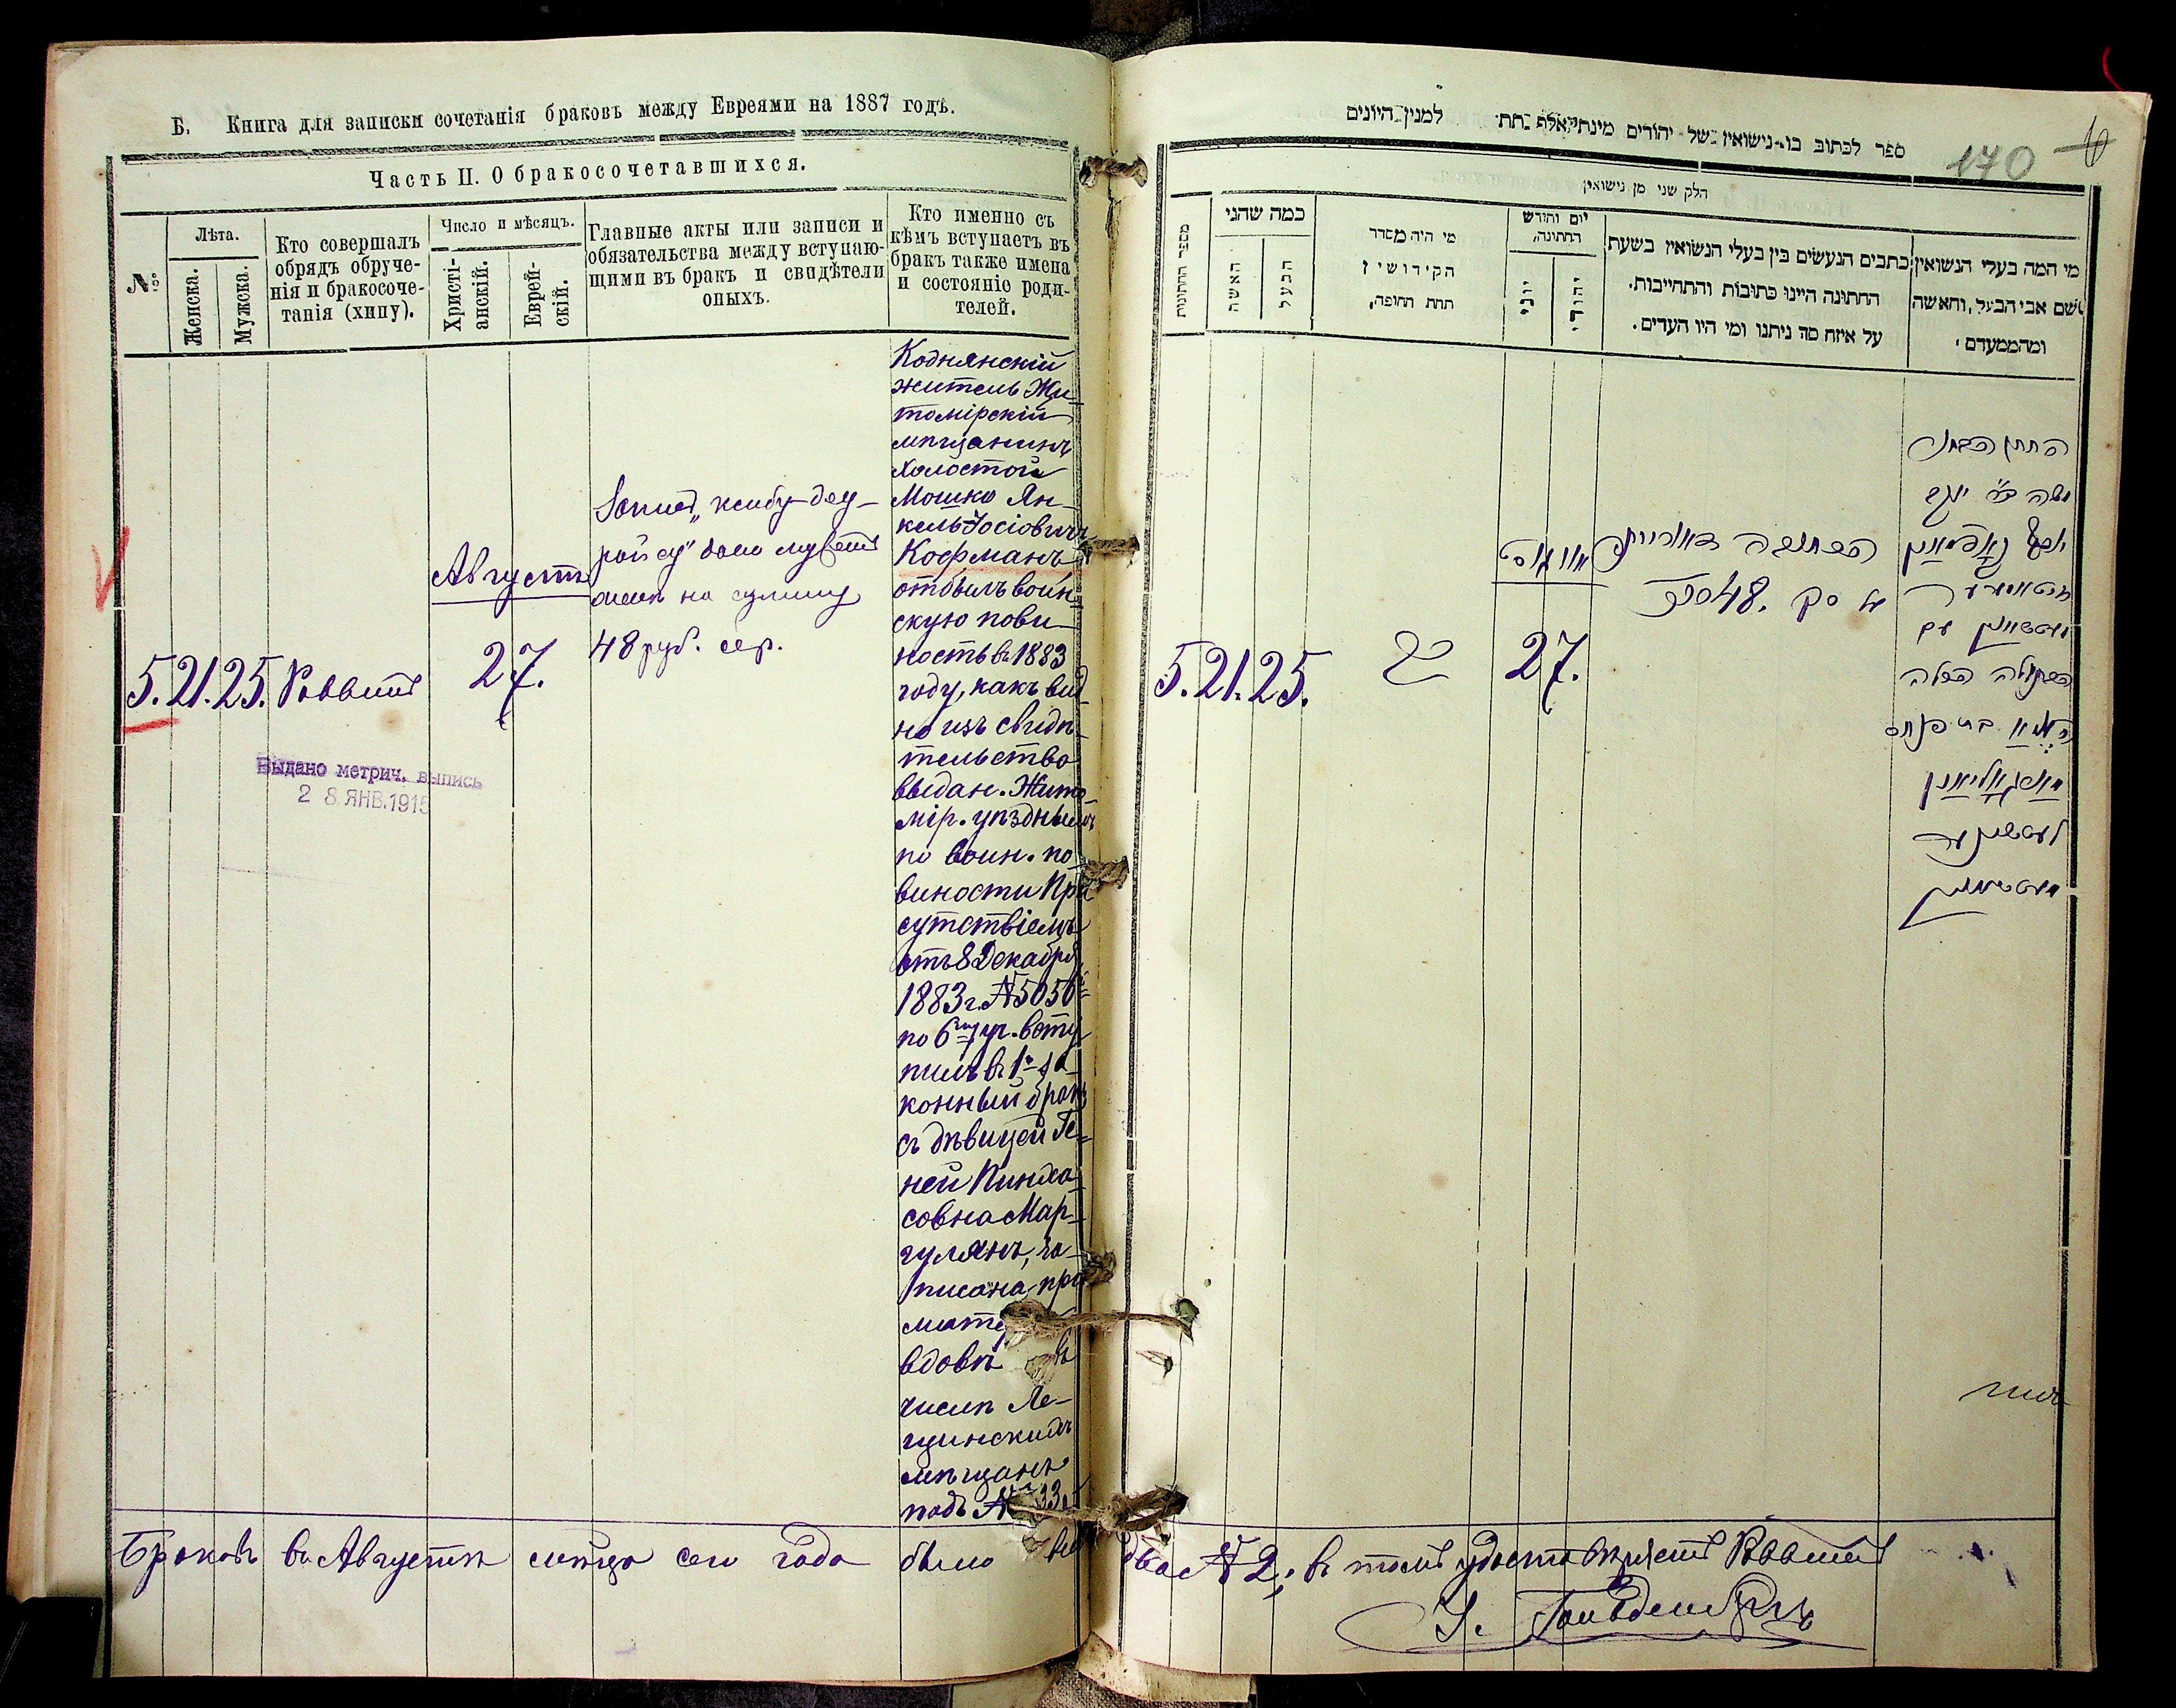 Б. Книга для записки сочетанія браковъ между Евреями на 1887 годъ.
Часть II. О бракосочетавшихся.
№
Лѣта.
Женска.
Мужска.
Кто совершалъ
обрядъ обруче-
нія и бракосоче-
танія (хипу).
Число и мѣсяцъ.
Христі-
анскій.
Еврей-
скій.
Главные акты или записи и
обязательства между вступаю-
щими въ бракъ и свидѣтели
оныхъ.
Кто именно съ
кѣмъ вступаетъ въ
бракъ также имена
и состояніе роди-
телей.
5. 21. 25. Раввинъ
Августъ
27.
48 руб. сер.
Коднянскій
житель Жи-
томірскій
мѣщанинъ
холостой
Мошко Ян-
кель Іосіовичъ
Кофманъ
отбылъ воин-
скую пови-
ность въ 1883
году, какъ вид-
но изъ свидѣ-
тельства
выдан. Жито-
мір. уѣзднымъ
по воин. по-
виности При-
сутствіемъ
отъ 8 Декабря
1883 г. № 5050
по 6му уч. всту-
пилъ въ 1й за-
конный бракъ
съ дѣвицей Ге-
ней Пинха-
совна Мар-
гулянъ, за-
писана при
вдовѣ въ
числѣ Ле-
щинскихъ
мѣщанъ
подъ №
Выдано метрич. выпись
2 8 ЯНВ. 1915
Браковъ въ Августѣ мѣсяцѣ сего года было
ספר לכתוב בו נישואין של יהודים מינתי אלף תת למנין היונים
170
חלק שני מן נישואין
מספר החתונות
כמה שהני
האשה
הבעל
מי היה מסדר
הקידושין
תחת החופה,
יום וחודש
החתונה,
יוני
יהודי
כתבים הנעשים בין בעלי הנשואין בשעת
החתונה היינו כתובות והתחייבות.
על איזה סך ניתנו ומי היו העדים.
מי המה בעלי הנשואין
שם אבי הבעל, והאשה
ומהממעדם
5. 21. 25.
אוגוסט
27.
48.
החתן הבחור
משה
קאפמאן
הבתולה הכלה
בת פנחס
מארגאליאן
два № 2, въ томъ удостовѣряетъ Раввинъ